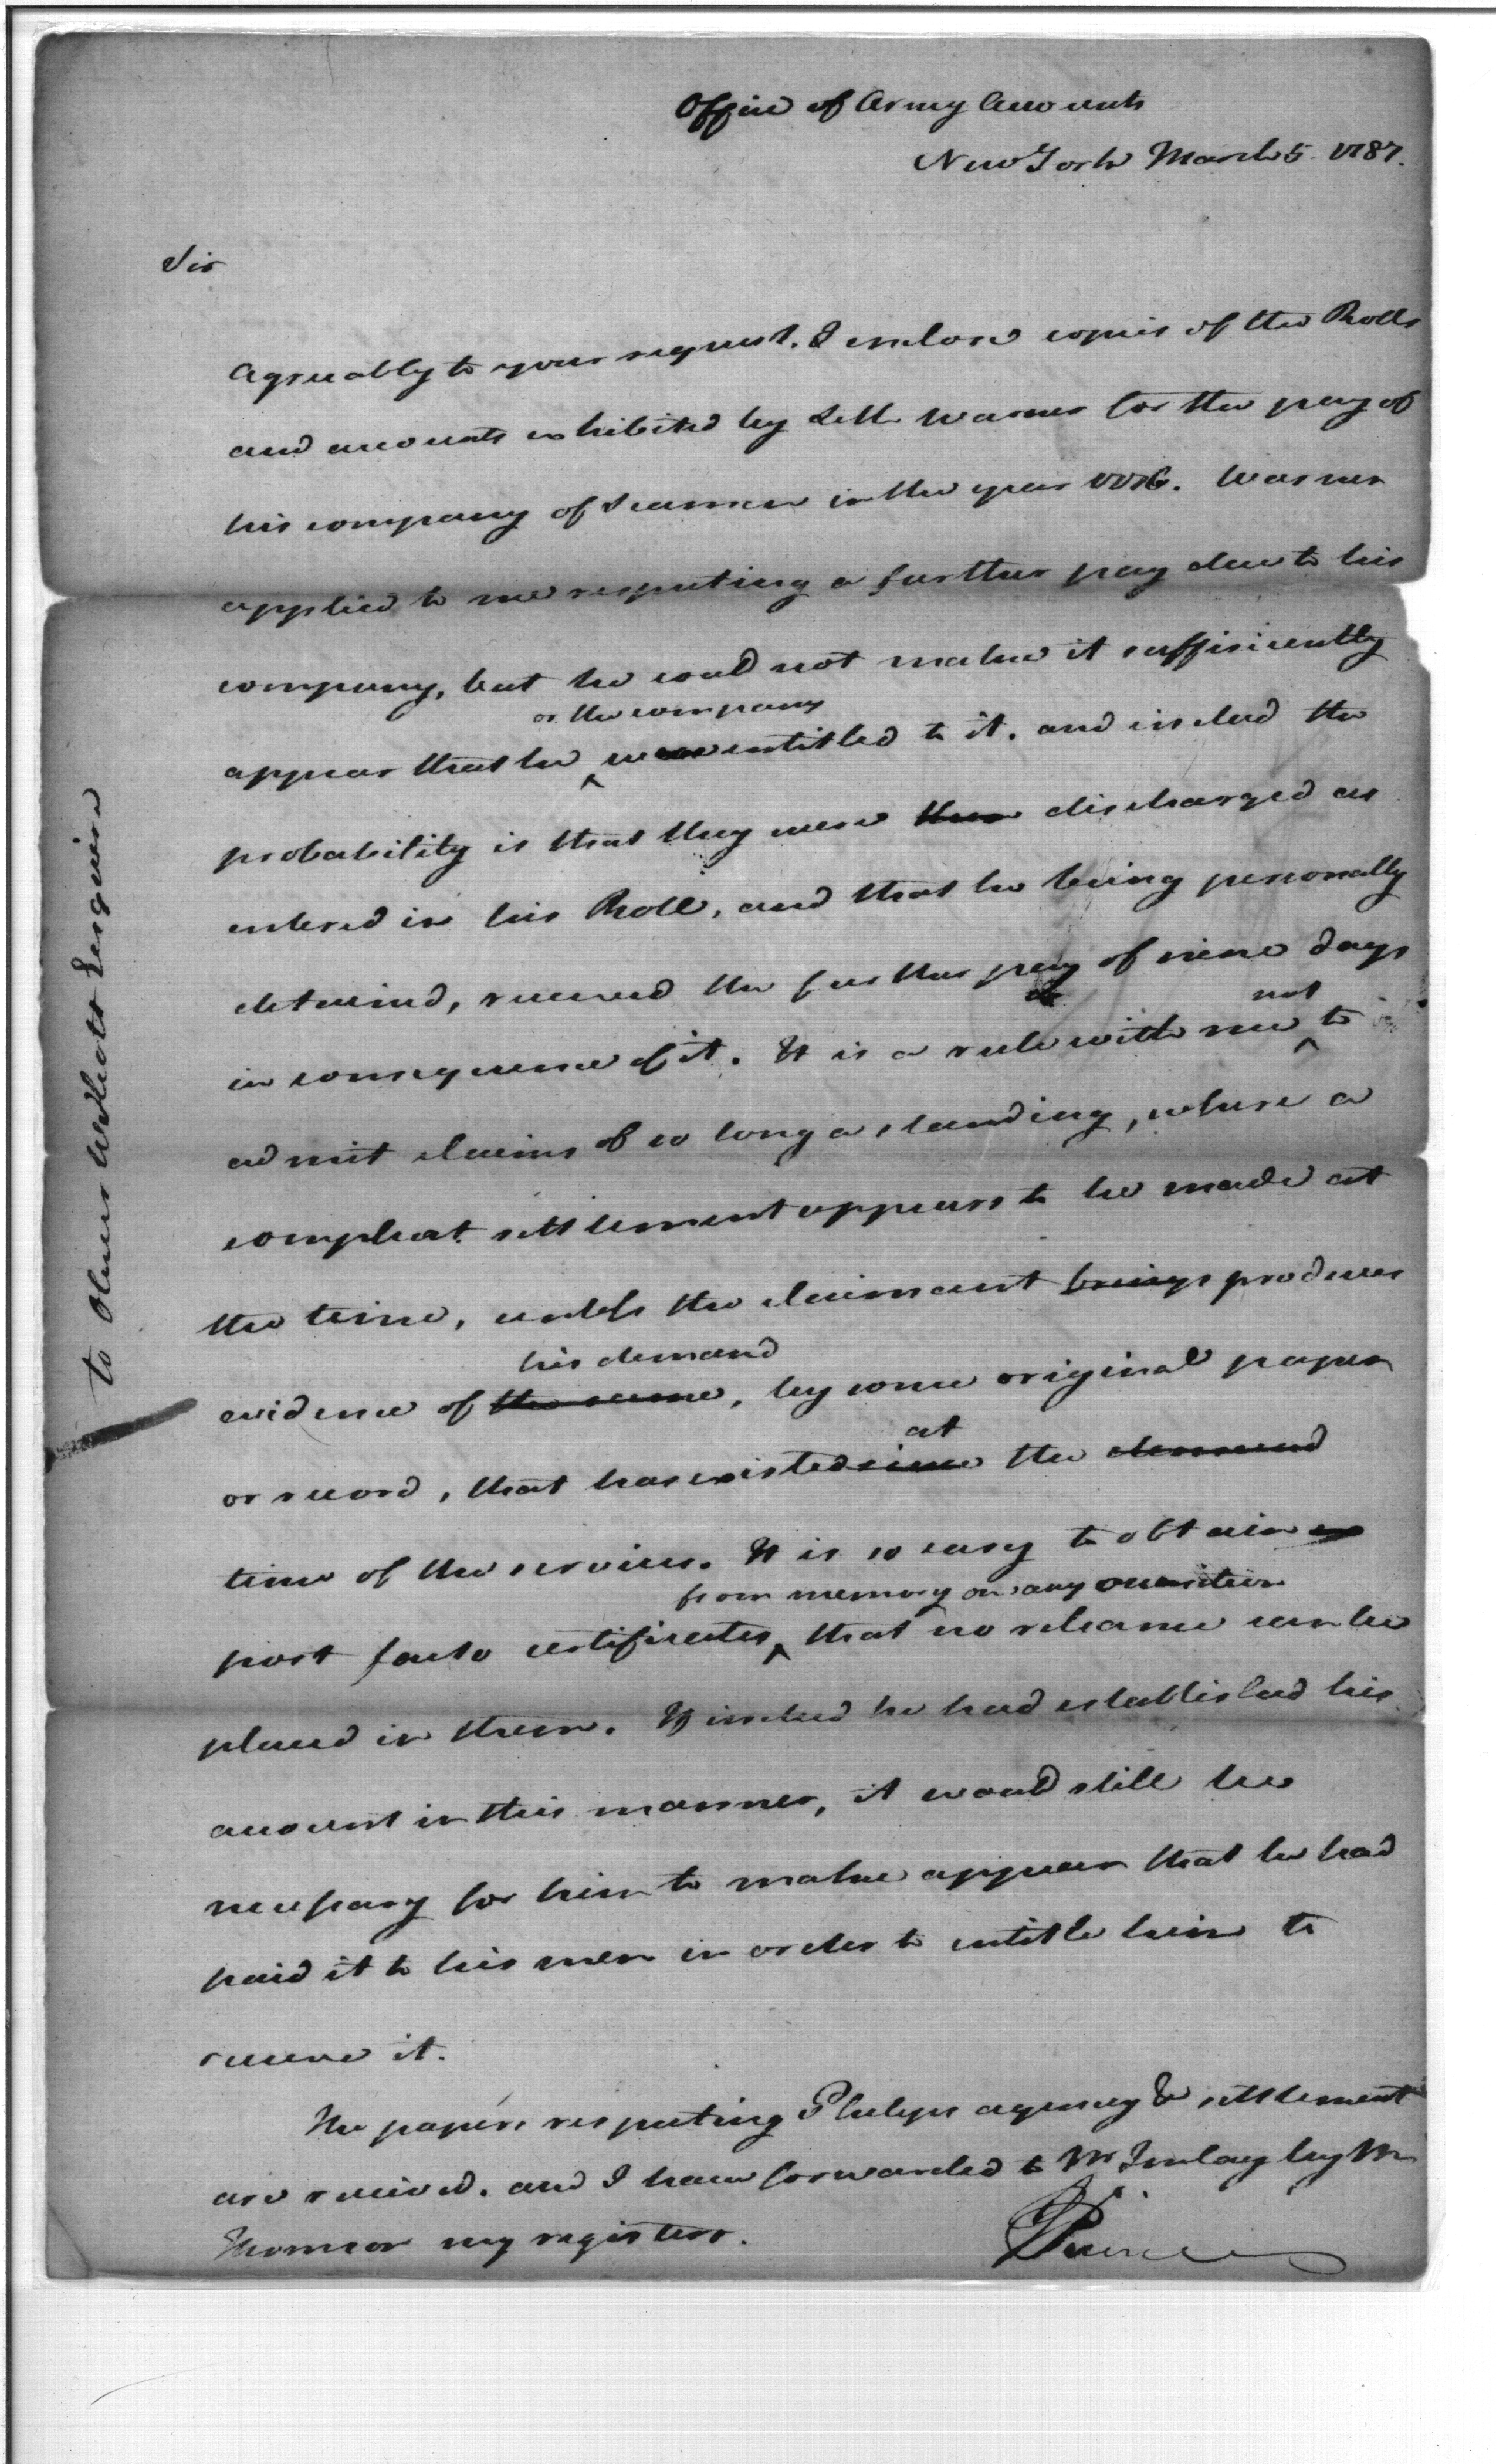 Office of Army Accounts
New York March 5. 1787.
Sir
Agreeably to your request, I enclose copies of the Rolls
and accounts exhibited by Seth Warner for the pay of
his company of Seamen in the year 1776. Warner
applied to me respecting a further pay due to his
company, but he could not make it sufficiently
or the company
appear that he ^ were entitled to it, and indeed the
probability is that they were then discharged as
entered in his Roll, and that he being personally
detained, received the further pay of nine days
not
in consequence of it. It is a rule with me ^ to
admit claims of so long a standing, where a
compleat settlement appears to be made at
the time, unless the claimant brings produces
his demand
evidence of the same, by some original paper
at
or record, that has existed since the demand
time of the services. It is so easy to obtain
from memory on any
post facto certificates ^ that no reliance can be
placed in them. If indeed he had established his
account in this manner, it would still be
necessary for him to make appear that he had
paid it to his men in order to entitle him to
receive it.
The papers respecting Phelps agency & settlement
are received, and I have forwarded to Mr Imlay by Mr
Thomson my register.
J Pierce
To Oliver Wolcott Esquire